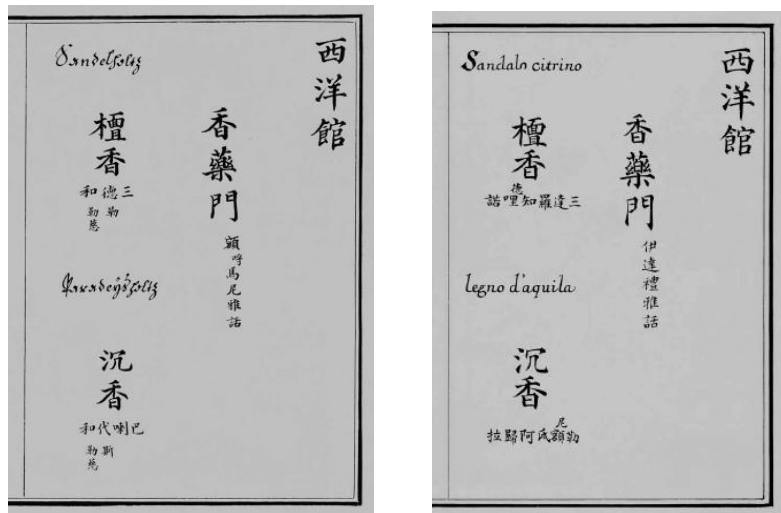 西洋館
香藥門
額哷馬尼雅話
Sandelholtz
檀香
三德和
勒 勒慈
Paradeÿßholtz
沉香
巴喇代和
斯 勒慈
西洋館
香藥門
伊達禮雅話
Sandalo citrino
檀香
德
三達羅知哩諾
legno d'aquila
沉香
尼
勒額氐阿歸拉